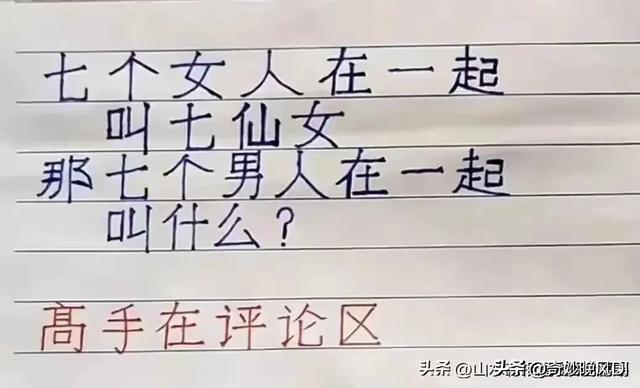 七个女人在一起
叫七仙女
那七个男人在一起
叫什么?
高手在评论区
头条
头条